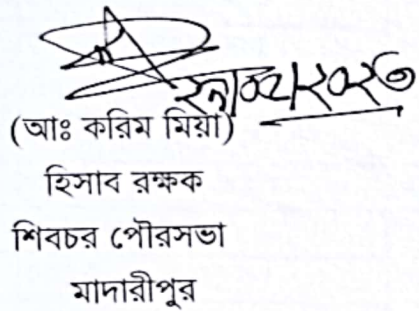 (আঃ করিম মিয়া)
হিসাব রক্ষক
শিবচর পৌরসভা
মাদারীপুর